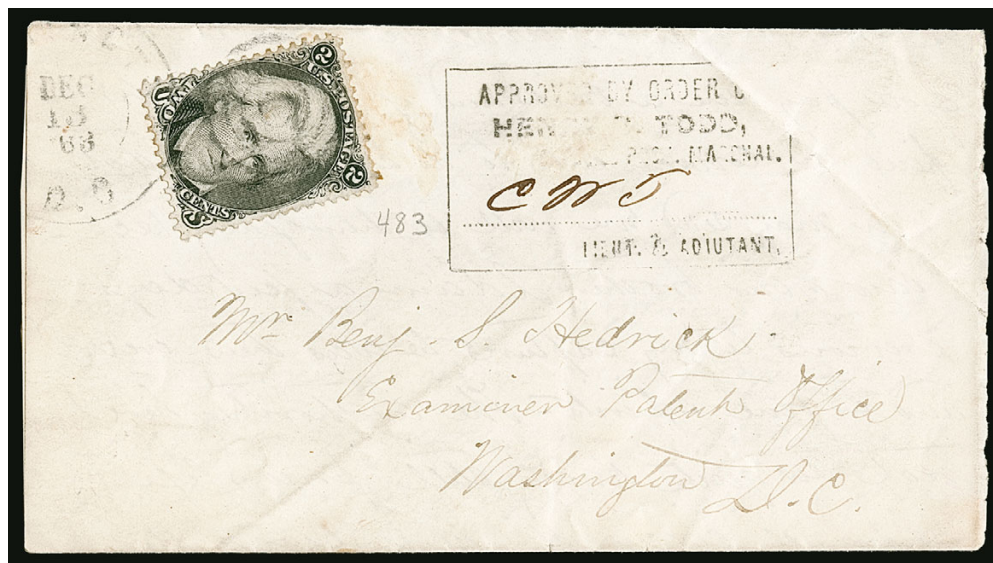 DEC
'63
D.C
2 U.S. POSTAGE 2
TWO CENTS
APPROVED BY ORDER O
HENRY B. TODD,
MARSHAL.
C W T
LIEUT. & ADJUTANT.
483
Mr Benj. S. Hedrick
Examiner Patent Office
Washington D.C.